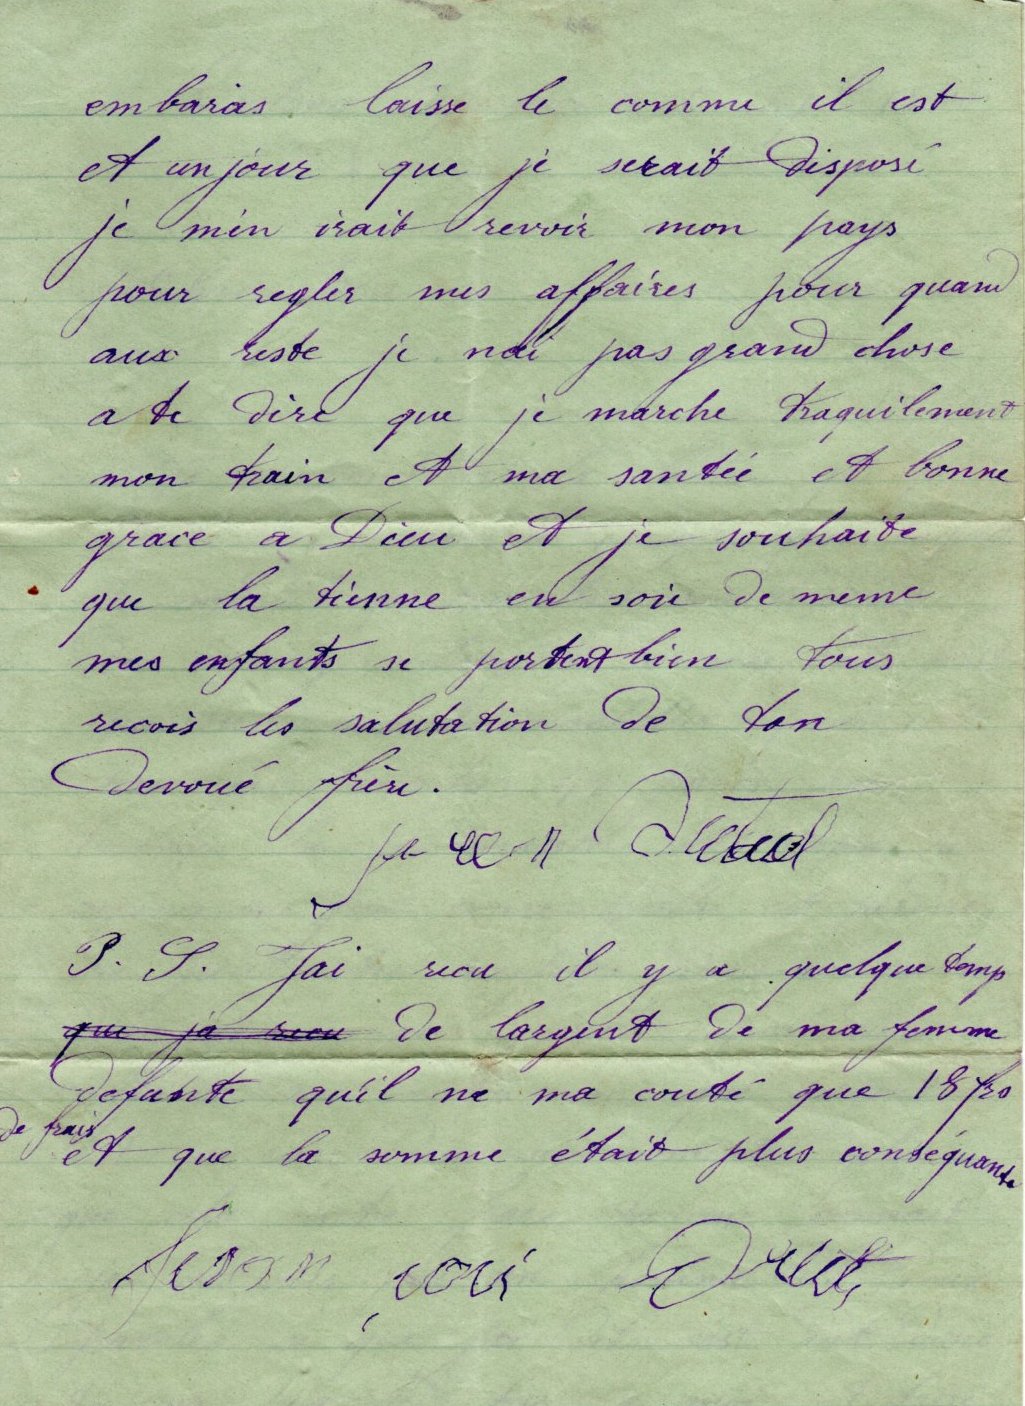 embaras laisse le comme il est
et un jour que je serait disposé
je m'en irait revoir mon pays
pour regler mes affaires pour quand
aux reste je nai pas grand chose
a te dire que je marche traquilement
mon train et ma santée et bonne
grace a Dieu et je souhaite
que la tienne en soie de meme
mes enfants se portent bien tous
recois les salutation de ton
devoué frère.
P. S. Jai recu il y a quelque temp
que ja recu de largent de ma femme
defunte qu'il ne ma couté que 18 frs
de frais
et que la somme était plus conséquante